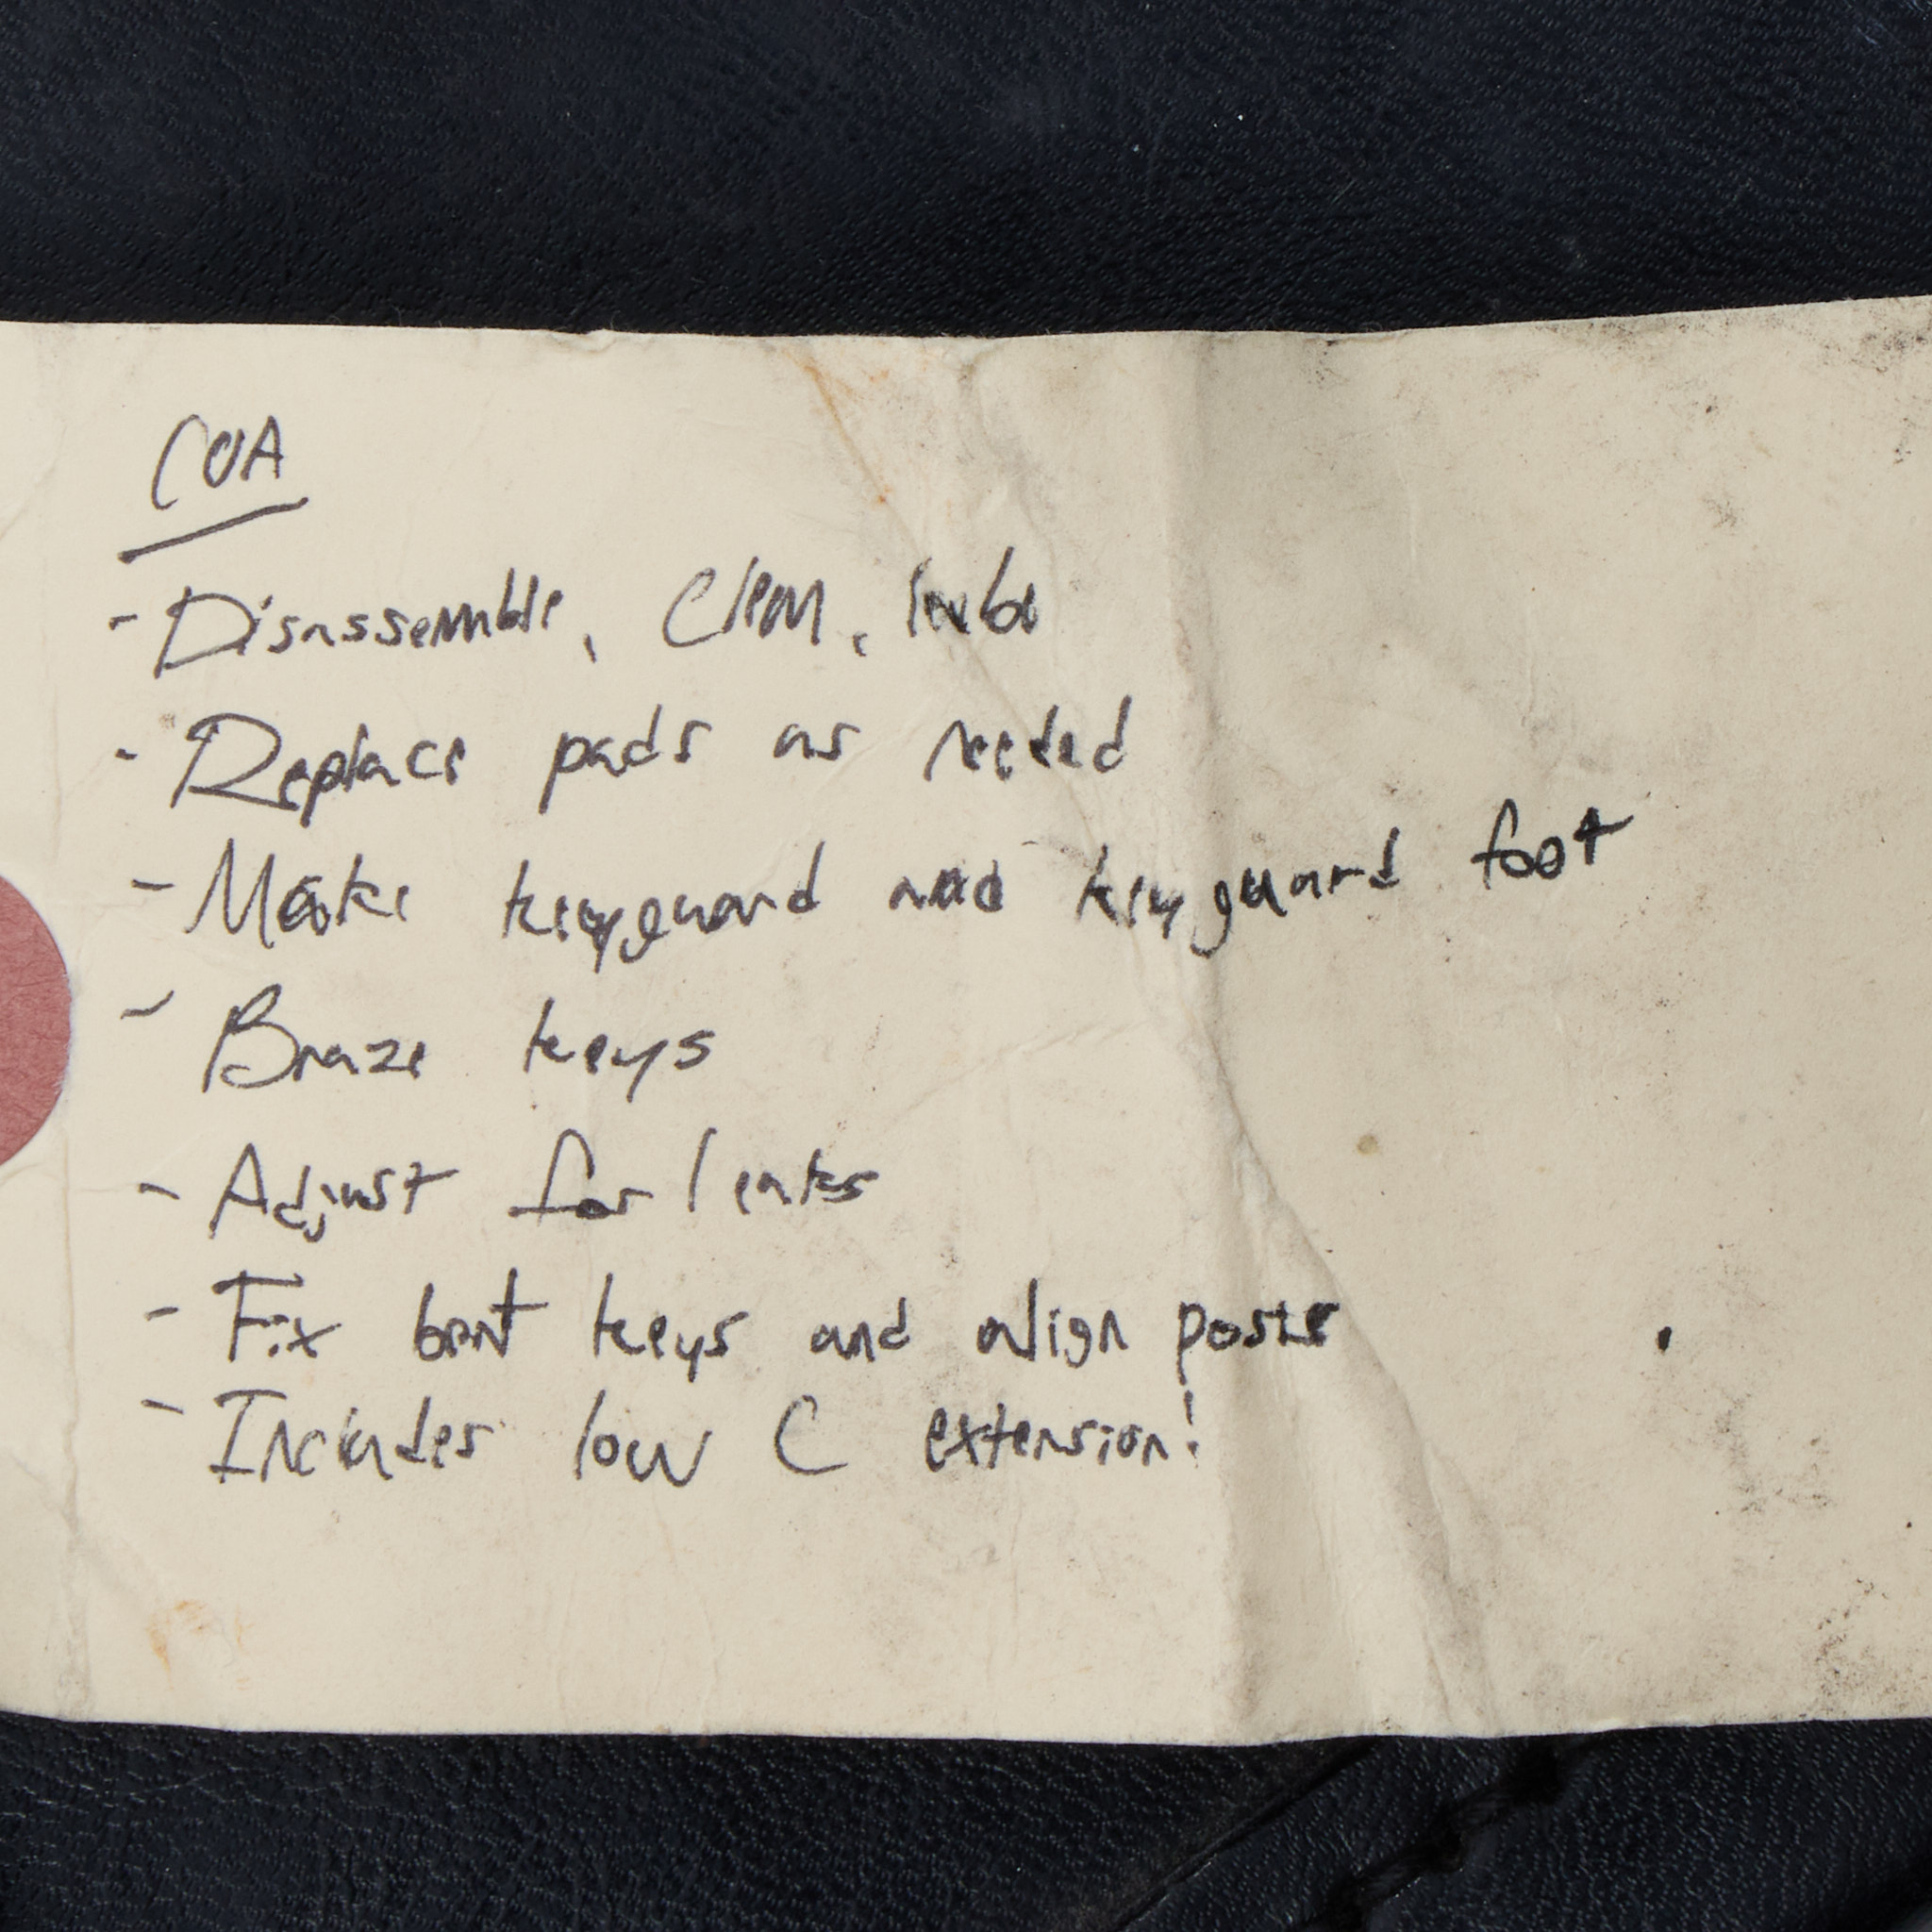 COA
- Disassemble, Clean, lube
- Replace pads as needed
- Make keyguard and keyguard foot
- Braze keys
- Adjust for leaks
- Fix bent keys and align posts
- Includes low C extension!